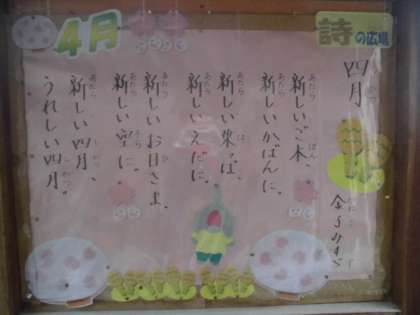 4月
詩の広場
四月
金子みすゞ
新しいご本、
新しいかばんに。
新しい葉っぱ、
新しいえだに。
新しいお日さま、
新しい空に。
新しい四月、
うれしい四月。